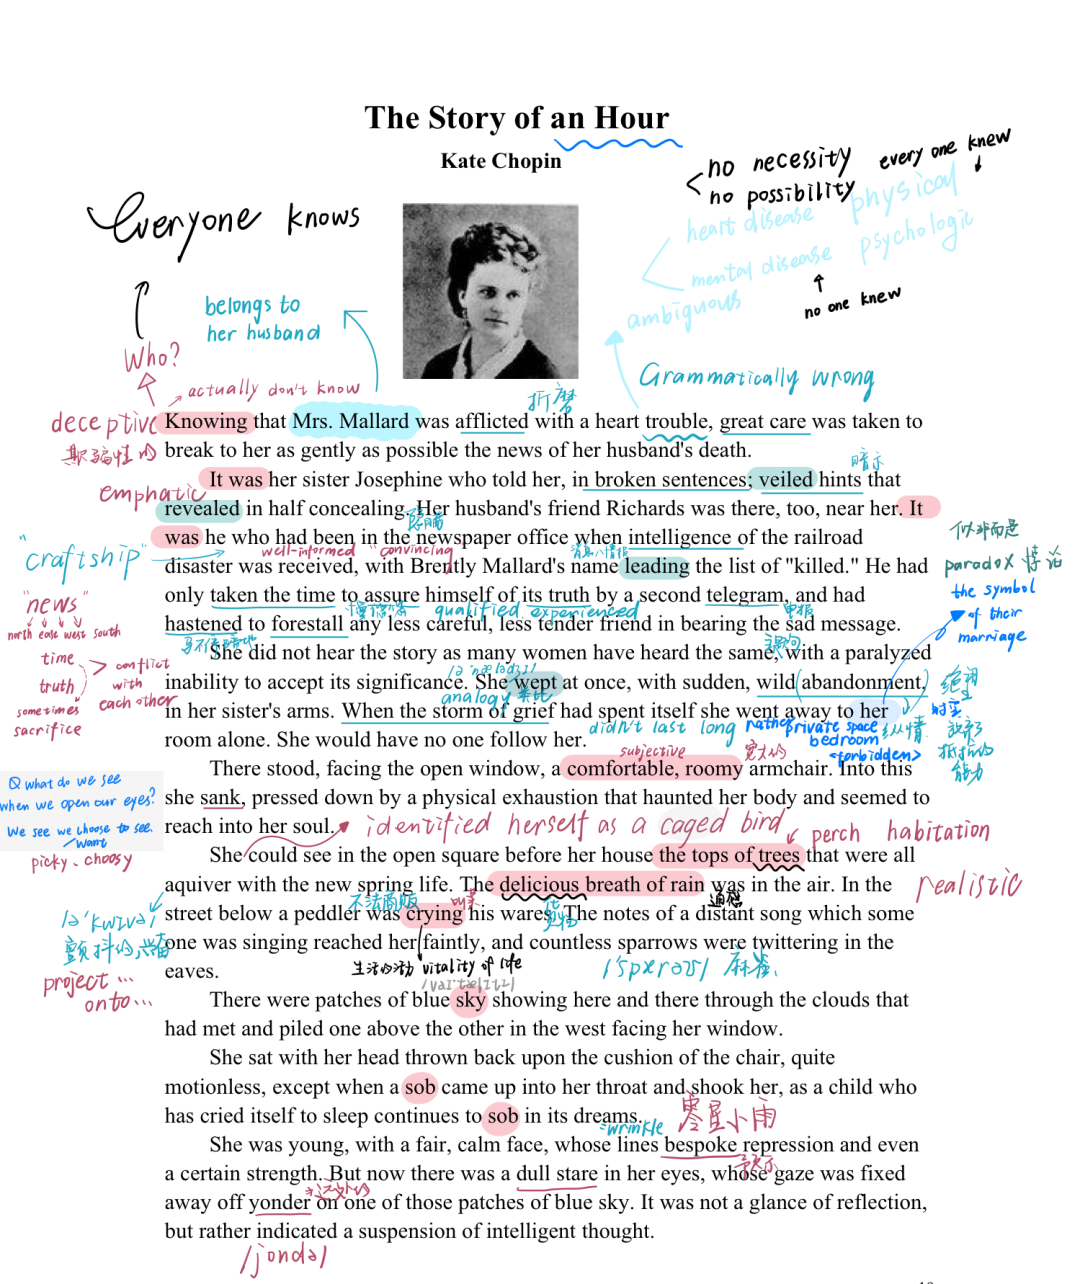 The Story of an Hour
Kate Chopin
no necessity
every one knew
no possibility
physical
heart disease
psychologic
mental disease
ambiguous
no one knew
Everyone knows
belongs to
her husband
Who?
actually don't know
Grammatically wrong
折磨
deceptive
欺骗性的
Knowing that Mrs. Mallard was afflicted with a heart trouble, great care was taken to
break to her as gently as possible the news of her husband's death.
暗示
It was her sister Josephine who told her, in broken sentences; veiled hints that
emphatic
revealed in half concealing. Her husband's friend Richards was there, too, near her. It
was he who had been in the newspaper office when intelligence of the railroad
似非而是
"craftship"
well-informed
convincing
disaster was received, with Brently Mallard's name leading the list of "killed." He had
paradox 悖论
the symbol
of their
marriage
only taken the time to assure himself of its truth by a second telegram, and had
"news"
north east west south
qualified experienced
电报
hastened to forestall any less careful, less tender friend in bearing the sad message.
She did not hear the story as many women have heard the same, with a paralyzed
time
truth
sometimes
sacrifice
conflict
with
each other
inability to accept its significance. She wept at once, with sudden, wild abandonment,
analogy 类比
in her sister's arms. When the storm of grief had spent itself she went away to her
didn't last long
rather private space
bedroom
<forbidden>
纵情
放弃
抵抗的
能力
room alone. She would have no one follow her.
subjective
宽大的
There stood, facing the open window, a comfortable, roomy armchair. Into this
Q what do we see
when we open our eyes?
We see we choose to see.
want
picky、choosy
she sank, pressed down by a physical exhaustion that haunted her body and seemed to
reach into her soul.
identified herself as a caged bird
perch habitation
She could see in the open square before her house the tops of trees that were all
aquiver with the new spring life. The delicious breath of rain was in the air. In the
realistic
不法商贩
叫卖
通感
street below a peddler was crying his wares. The notes of a distant song which some
/ə'kwivə/
颤抖的,兴奋
one was singing reached her faintly, and countless sparrows were twittering in the
eaves.
生活的活力 vitality of life
/vaɪ'tælɪti/
/'spærəʊ/ 麻雀
project ...
onto ...
There were patches of blue sky showing here and there through the clouds that
had met and piled one above the other in the west facing her window.
She sat with her head thrown back upon the cushion of the chair, quite
motionless, except when a sob came up into her throat and shook her, as a child who
has cried itself to sleep continues to sob in its dreams.
零星小雨
wrinkle
She was young, with a fair, calm face, whose lines bespoke repression and even
预示
a certain strength. But now there was a dull stare in her eyes, whose gaze was fixed
远处的
away off yonder on one of those patches of blue sky. It was not a glance of reflection,
but rather indicated a suspension of intelligent thought.
/jondə/